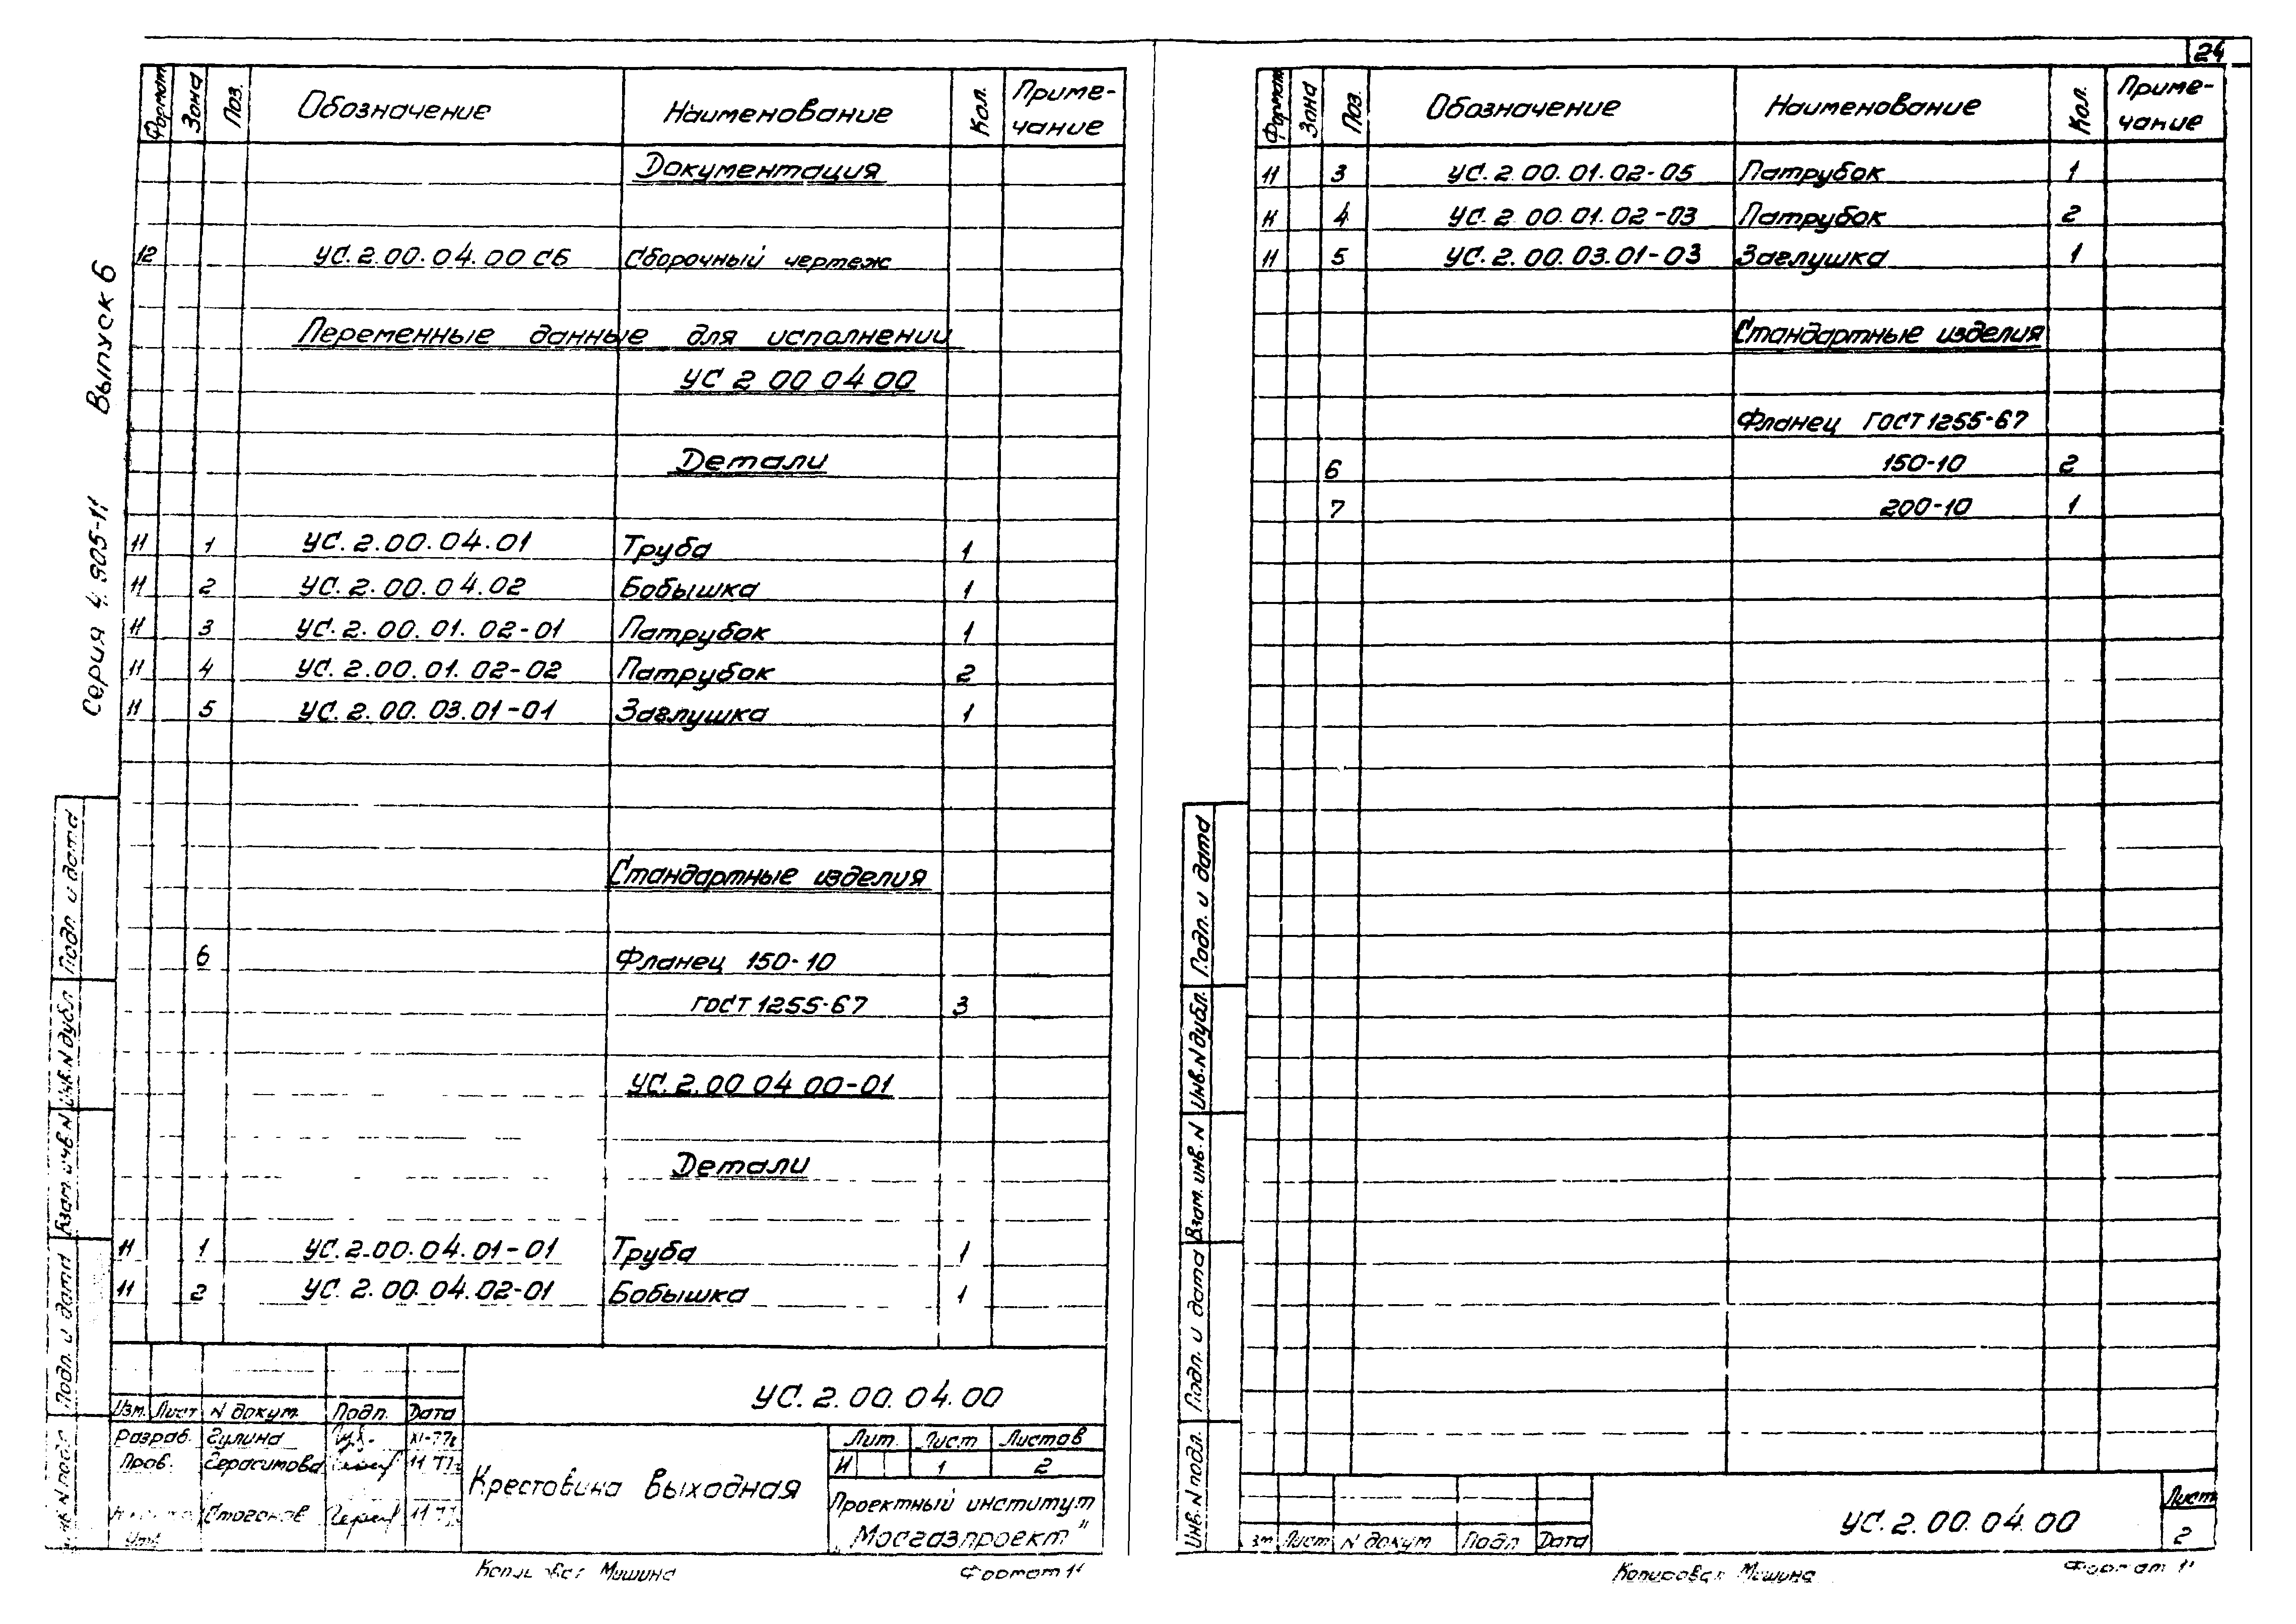 24
Серия 4.905-11 Выпуск 6
Формат Зона Поз. Обозначение Наименование Кол. Примечание
Документация
12 УС.2.00.04.00 СБ Сборочный чертеж
Переменные данные для исполнении
УС 2 00 04 00
Детали
11 1 УС.2.00.04.01 Труба 1
11 2 УС.2.00.04.02 Бобышка 1
11 3 УС.2.00.01.02-01 Патрубок 1
11 4 УС.2.00.01.02-02 Патрубок 2
11 5 УС.2.00.03.01-01 Заглушка 1
Стандартные изделия
6 Фланец 150-10
ГОСТ 1255-67 3
УС.2.00 04 00-01
Детали
11 1 УС.2.00.04.01-01 Труба 1
11 2 УС.2.00.04.02-01 Бобышка 1
Подп. и дата
Инв.N дубл
Взам. инв N
Подп. и дата
Инв. N подл
УС.2.00.04.00
Изм. Лист N докум. Подп. Дата
Разраб. Гулина XI-77г
Пров. Герасимова
Утв
Крестовина выходная
Лит. Лист Листов
И 1 2
Проектный институт
„Мосгазпроект"
Копировал Мишина Формат 11
Формат Зона Поз. Обозначение Наименование Кол. Примечание
11 3 УС.2.00.01.02-05 Патрубок 1
11 4 УС.2.00.01.02-03 Патрубок 2
11 5 УС.2.00.03.01-03 Заглушка 1
Стандартные изделия
Фланец ГОСТ 1255-67
6 150-10 2
7 200-10 1
Подп. и дата
Инв.N дубл.
Взам. инв. N
Подп. и дата
Инв. N подл.
Изм Лист N докум Подп Дата
УС.2.00.04.00
Лист
2
Копировал Мишина Формат 11